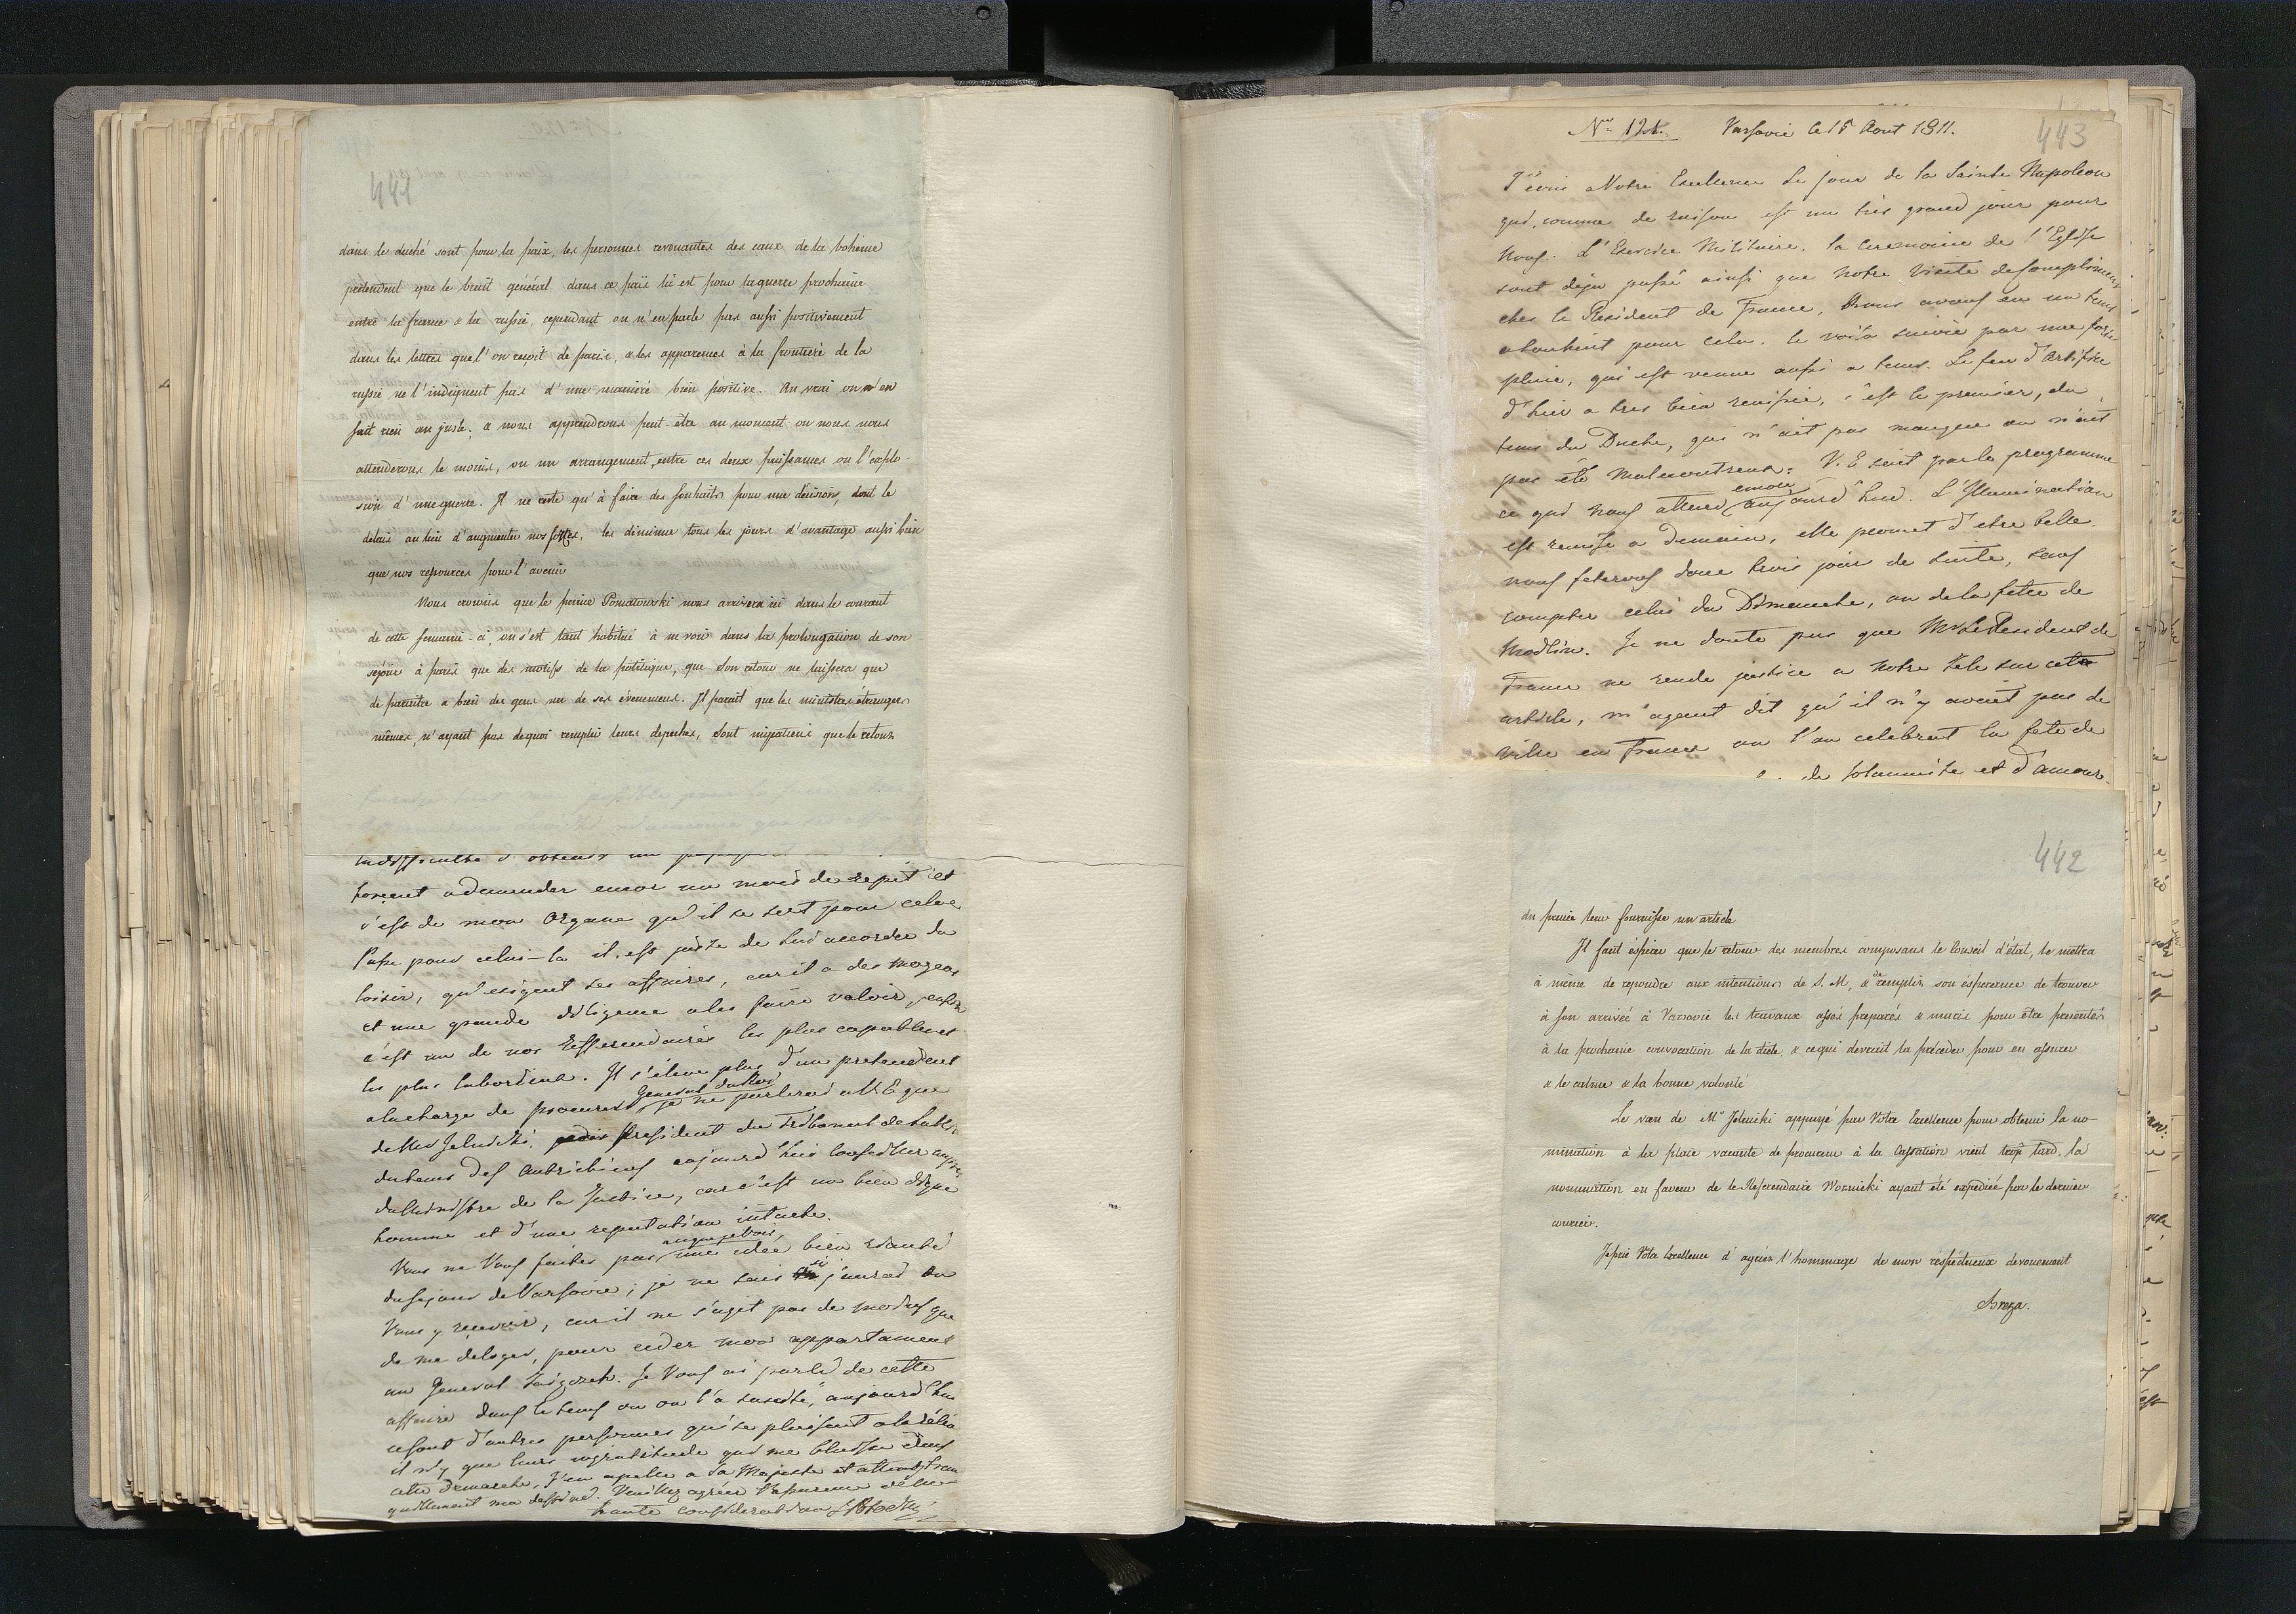 441
dans le duché sont pour la paix, les personnes revenantes des eaux de la bohème
prétendent que le bruit général dans ce païs là est pour la guerre prochaine
entre la france & la russie, cependant on n'en parle pas aussi positivement
dans les lettres que l'on reçoit de paris, & les apparences à la frontière de la
russie ne l'indiquent pas d'une manière bien positive. Au vrai on n'en
sait rien au juste, & nous apprendrons peut-être au moment où nous nous
attenderons le moins, ou un arrangement entre ces deux puissances ou l'explo-
sion d'une guerre. Il ne reste qu'à faire des souhaits pour une décision, dont le
délai au lieu d'augmenter nos forces, les diminue tous les jours d'avantage aussi bien
que nos ressources pour l'avenir
Nous croions que le prince Poniatowski nous arrivera ici dans le courant
de cette semaine-ci, on s'est tant habitué à ne voir dans la prolongation de son
séjour à paris que des motifs de la politique, que son retour ne laissera que
de paraître a bien des gens un de ses évenemens. Il parait que les ministres étrangers
mêmes, n'ayant pas de quoi remplir leurs depeches, sont impatiens que le retour
forcent a demander encor un mois de repit et
c'est de mon Organe qu'il se sert pour celue
Passe pour celui-la il est juste de lui accorder du
loisir, qu'exigent ses affaires, car il a des moyens
et une grande diligence a les faire valoir, enfin
c'est un de nos Refferendaires les plus capables et
les plus laborieux. Il s'élève plus d'un pretendent
a la charge de procureur General du Roi je ne parlerai a V.E que
de Mr Jelnicki, jadis President du Tribunal de Lublin
du tems des Autrichiens aujourd'hui Conseiller auprès
du Ministre de la Justice, car c'est un bien digne
homme et d'une reputation intacte.
Vous ne Vous faites pas une idée bien
du sejour de Varsovie; je ne sais si j'aurai ou
Vous y recevoir, car il ne s'agit pas de moins que
de me deloger, pour ceder mon appartament
au General Zaigczek. Je Vous ai parlé de cette
affaire dans le tems ou on l'a suscité, aujourd'hui
ce sont d'autres personnes qui se plaisent a
il n'y que leurs ingratitude qui me blesse dans
cette demarche. J'en apelle a Sa Majesté et attends tran-
quillement ma destiné. Veuillez agréer l'assurance de ma
haute consideration SPotocki
No 121. Varsovie le 15 Aout 1811.
443
J'écris a Votre Excellence le jour de la Sainte Napoleon
qui, comme de raison est un très grand jour pour
Nous. L'Exercice Militaire, la Ceremonie de l'Eglise
sont déja passé ainsi que notre Visite de Complimens
chez le Resident de France, Nous avons eu un tems
etouffant pour cela, le voila suivie par une forte
pluie, qui est venue aussi a tems. Le feu d'Artifice
d'hier a tres bien reussie, c'est le premier, du
tems du Duché, qui n'ait pas manquee ou n'ait
pas été Malencontreux. V.E sait par le programme
ce qui nous attend encore aujourd'hui. L'Illumination
est remise a demain, elle promet d'etre belle.
nous feterons donc trois jours de suite, sans
compter celui du Dimanche, ou de la fete de
Modlin. Je ne doute pas que Mr Le Resident de
France ne rende justice a notre Zele sur cet
article, m'ayant dit qu'il n'y avait pas de
Ville en France ou l'on celebrat la fete de
de solennité et d'amour.
442
du prince leur fournisse un article
Il faut éspérer que le retour des membres composans le Conseil d'état, le mettra
à même de repondre aux intentions de S. M, & de remplir son ésperance de trouver
à son arrivée à Varsovie les travaux assés préparés & muris pour être presentés
à la prochaine convocation de la diète, & ce qui devrait la précéder pour en assurer
& le calme & la bonne volonté
Le vœu de Mr Jelnicki appuyé par Votre Excellence pour obtenir la no-
mination à la place vacante de procureur à la Cassation vient trop tard, la
nomination en faveur de le Referendaire Woznicki ayant été expediée par le dernier
courier.
Je prie Votre Excellence d'agréer l'hommage de mon réspectueux devouement
Breza.